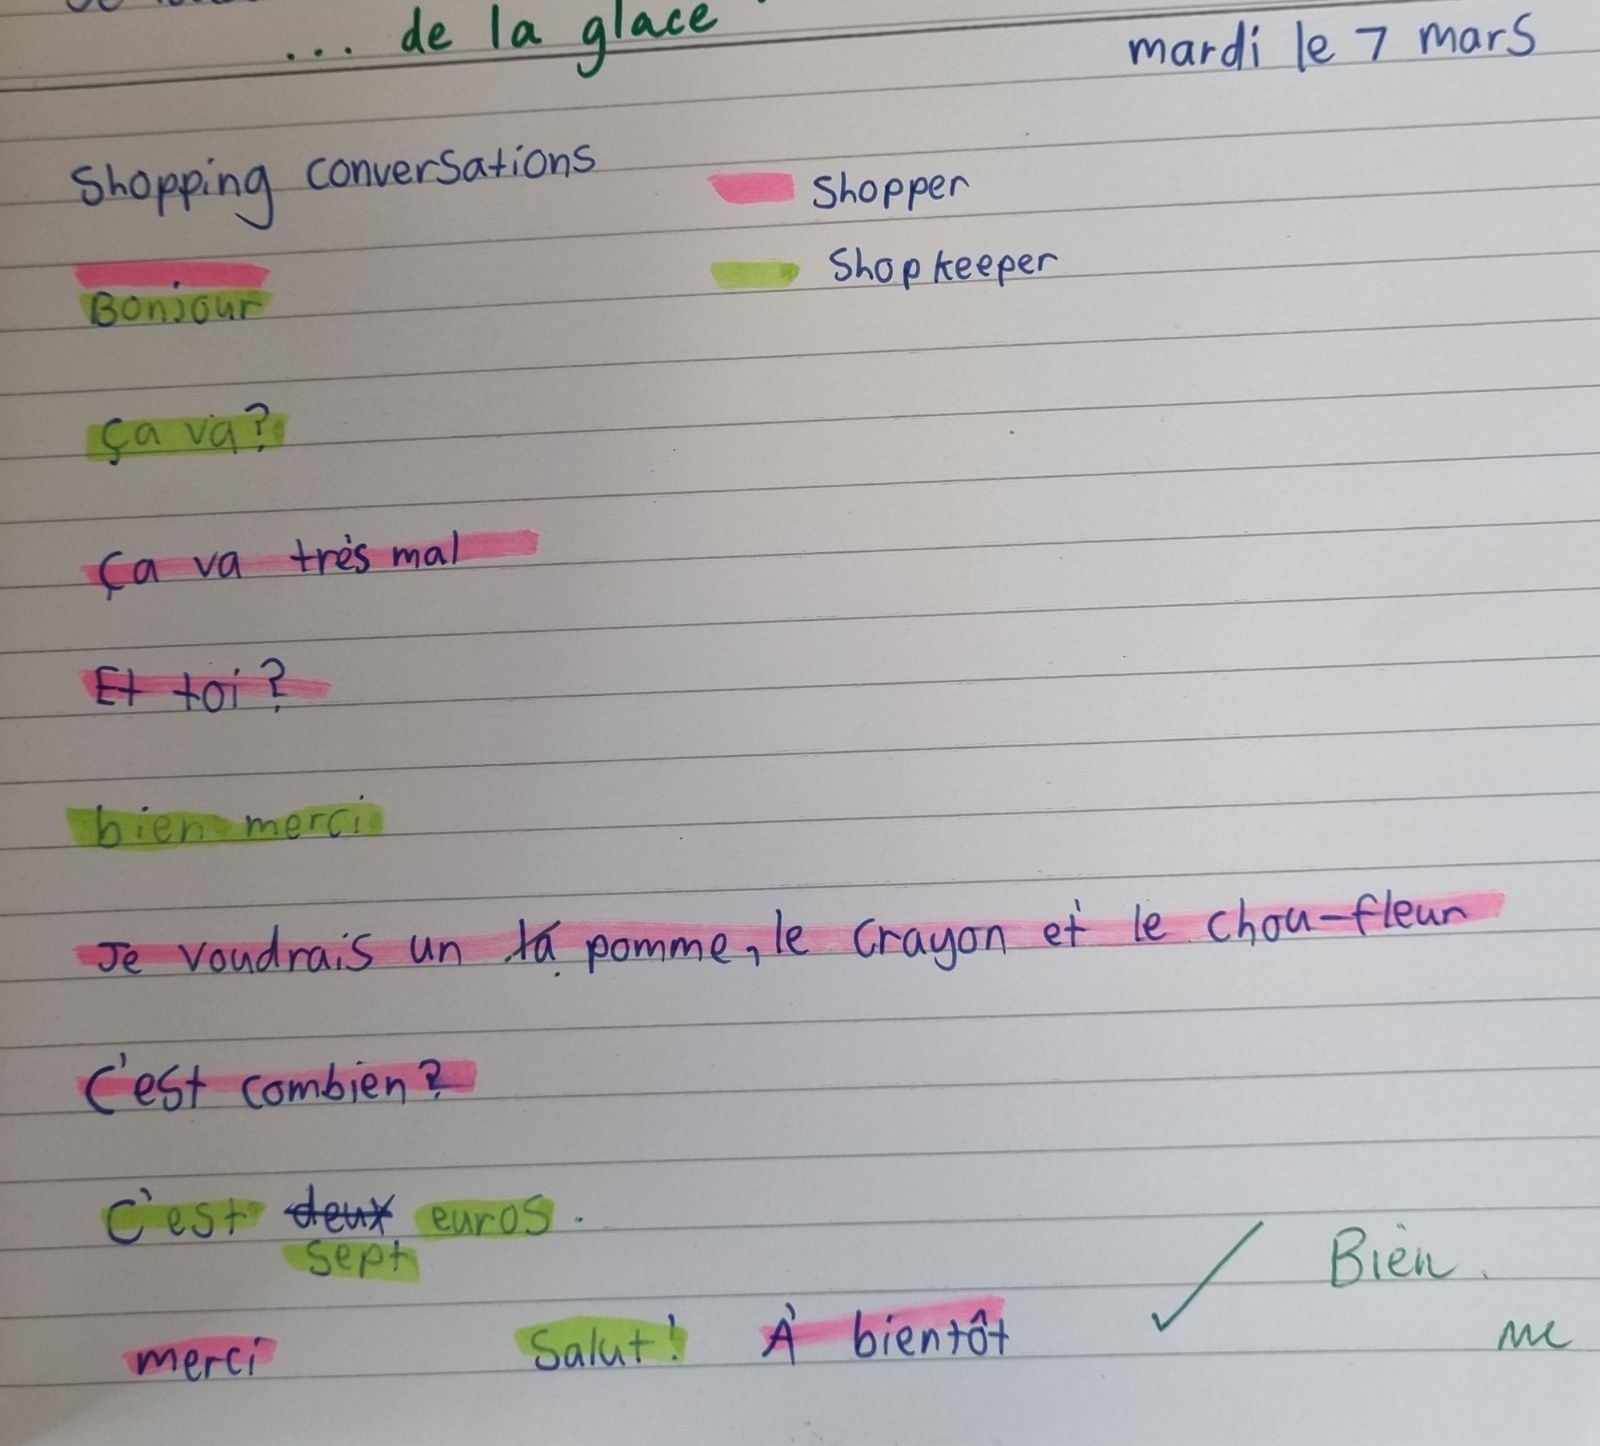 ... de la glace
mardi le 7 mars
Shopping conversations
Shopper
Shopkeeper
Bonjour
ça va?
ça va très mal
Et toi?
bien merci
Je voudrais un la pomme, le crayon et le chou-fleur
C'est combien?
C'est deux euros.
sept
merci Salut! À bientôt
Bien.